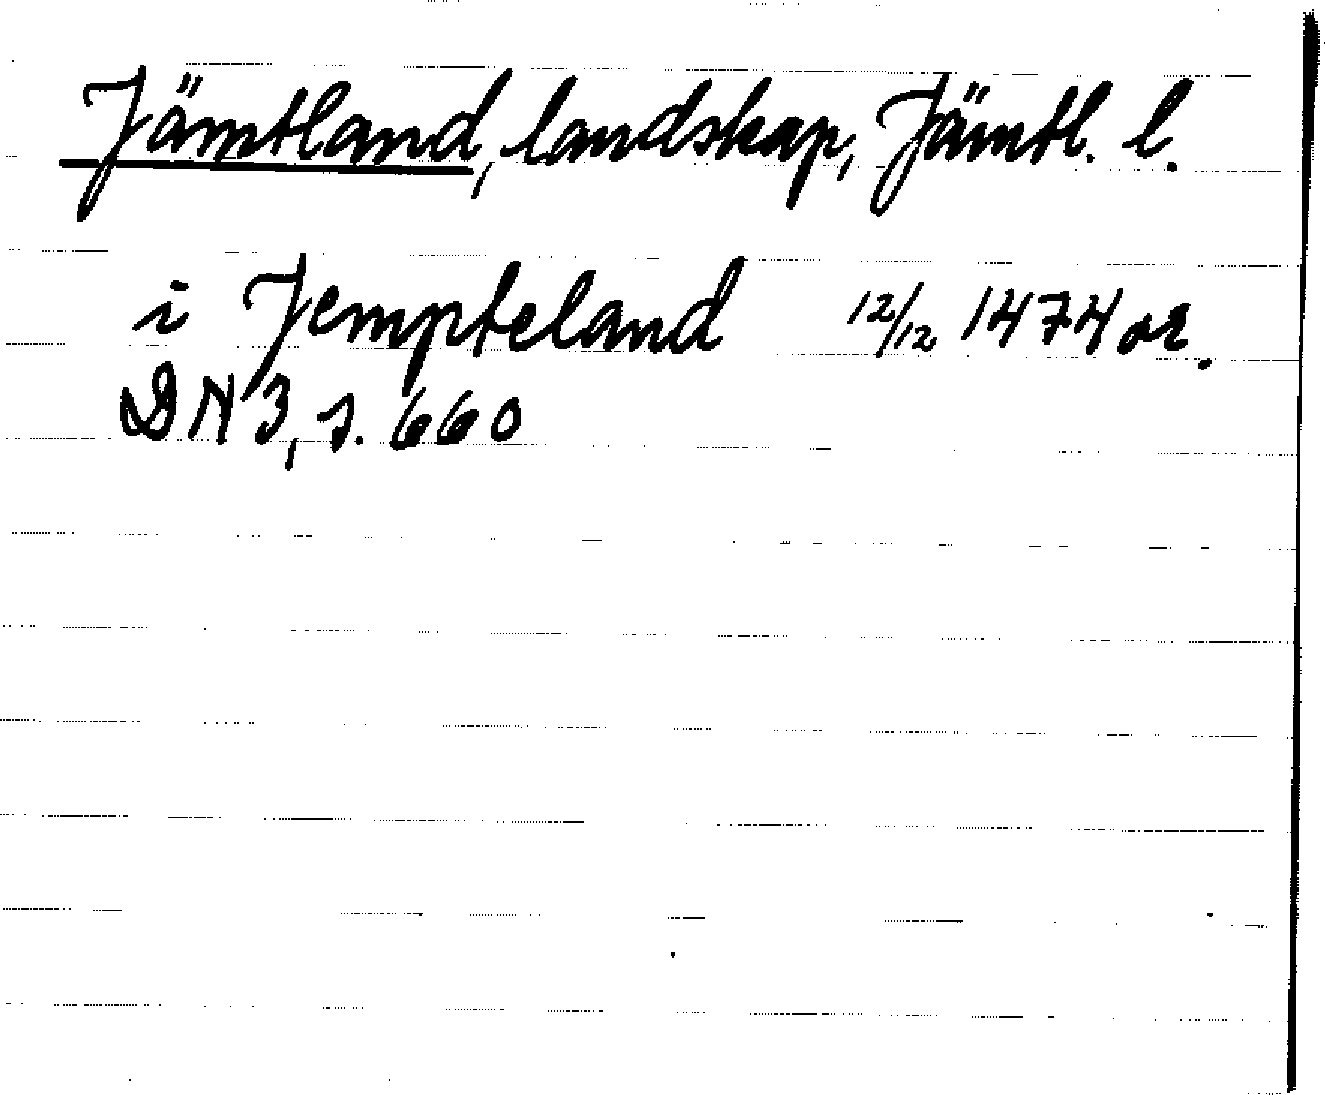 Jämtland, landskap, Jämtl. l.
i Jempteland 12/12 1474 or.
DN 3, s. 660